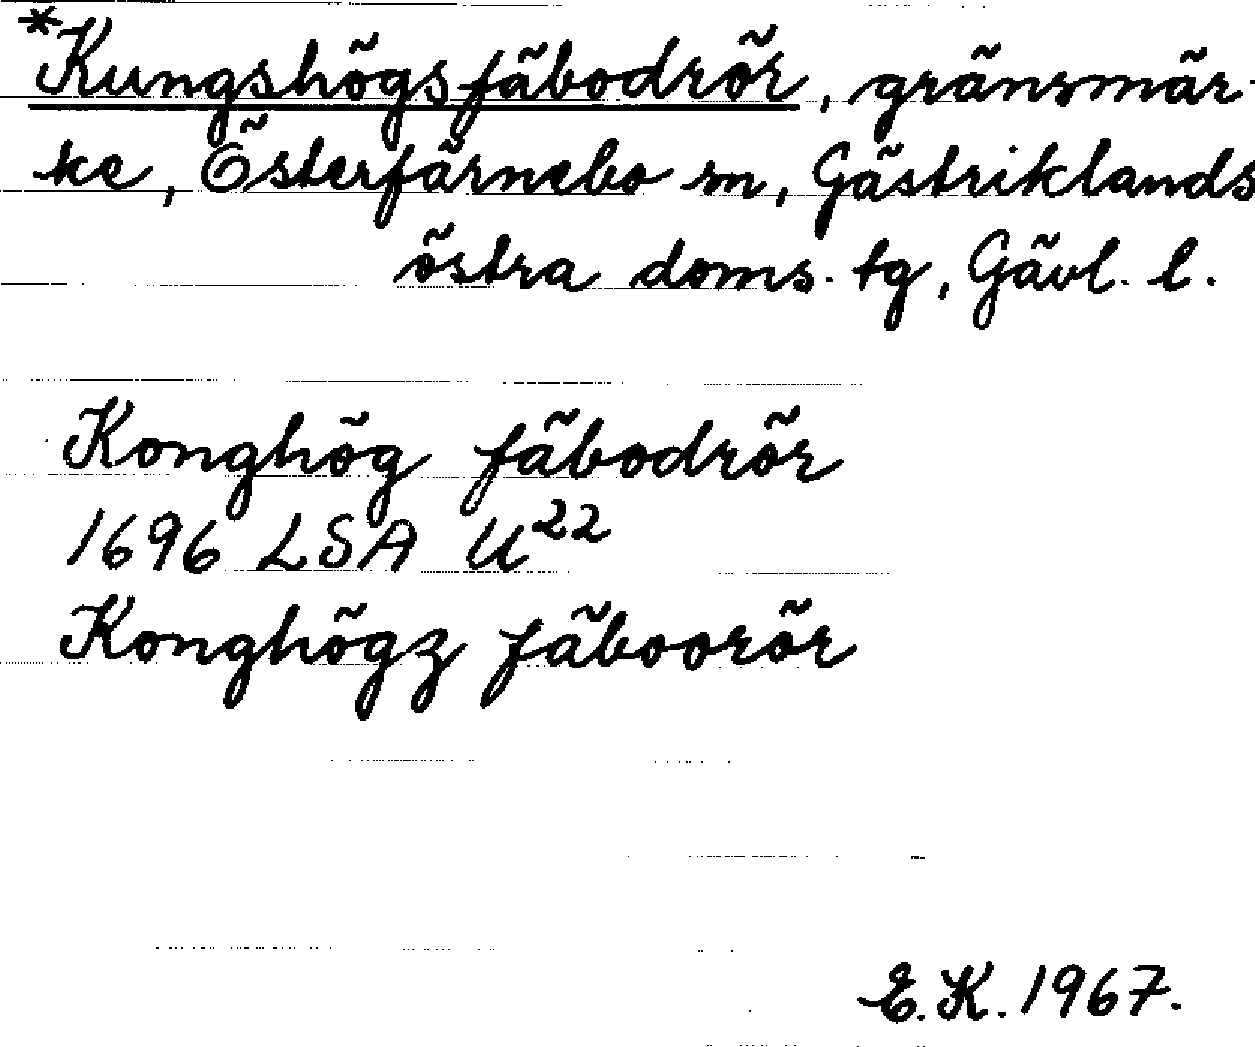 *Kungshögsfäbodrör, gränsmär-
ke, Österfärnebo sn, Gästriklands
östra doms. tg, Gävl. l.
Konghög fäbodrör
1696 LSA U22
Konghögz fäboorör
E.K. 1967.